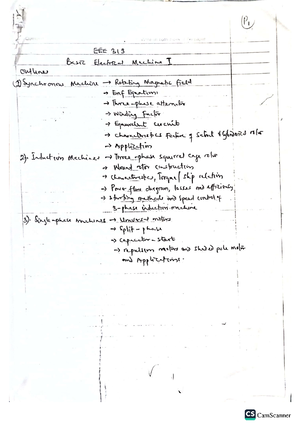 P1
EEE 313
Basic Electrical Machine I
Outlines
(1) Synchronous Machine → Rotating Magnetic field
→ Emf Equations
→ Three-phase alternator
→ Winding Factor
→ Equivalent circuit
→ Characteristics Factors of Salient & Cylindrical rotor
→ Application
2) Induction Machines → Three-phase squirrel cage rotor
→ Wound rotor construction
→ Characteristics, Torque/Slip relation
→ Power flow diagram, losses and efficiency,
→ Starting methods and speed control of
3-phase induction machine
3) Single-phase Machines → Universal motors
→ Split-phase
→ Capacitor-start
→ repulsion motors and Shaded pole motor
and Applications.
CS CamScanner